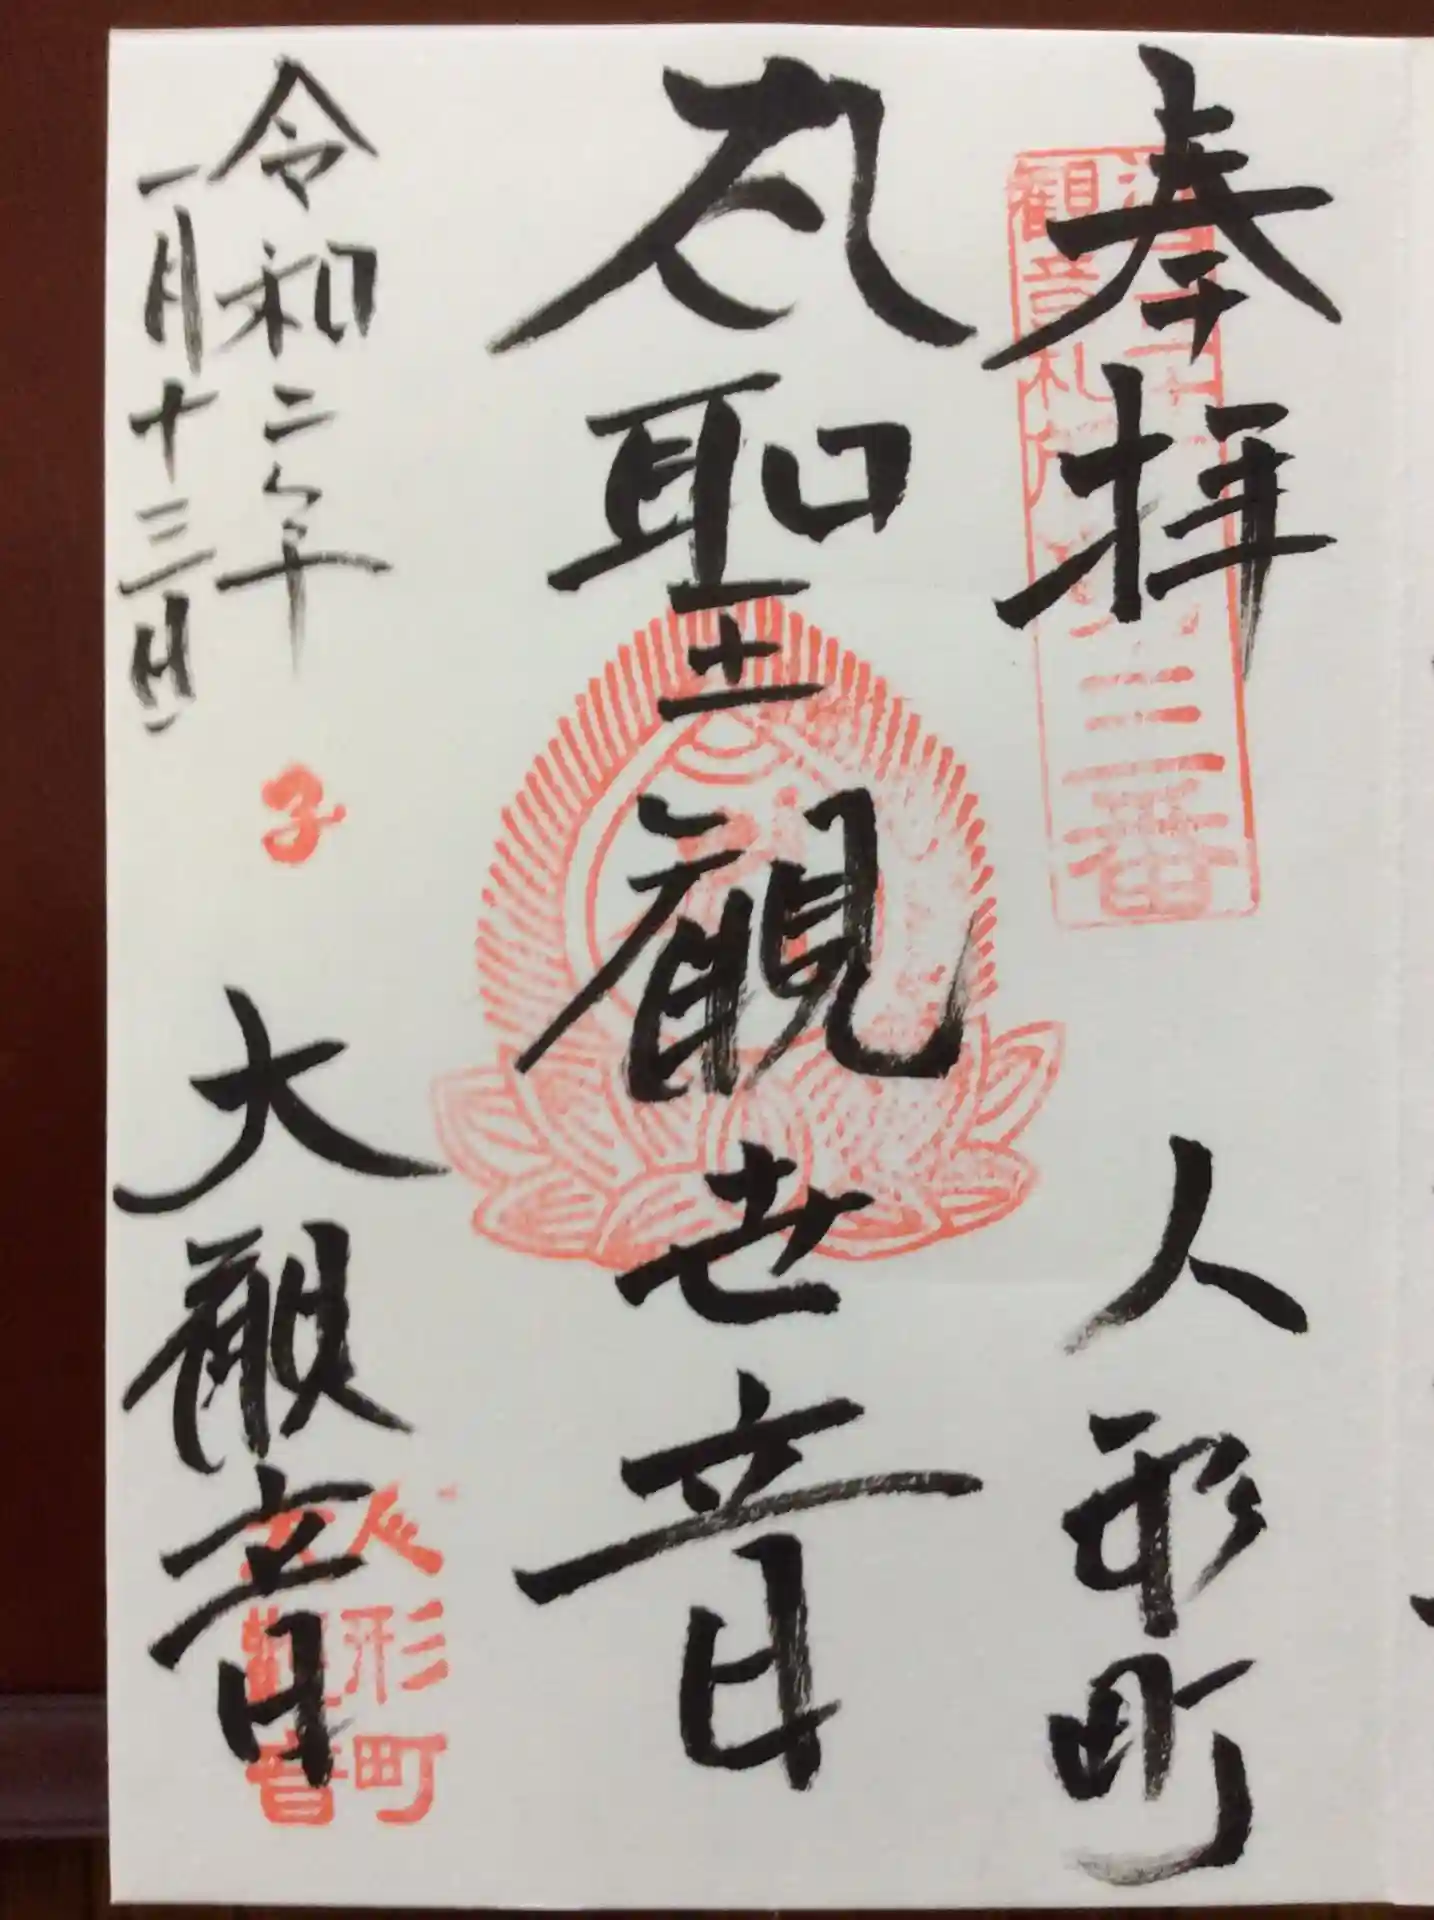 奉拝
人形町
江戸三十三
観音札所
第三番
聖観世音
令和二年
一月十三日
子
大観音
人形町
大観音